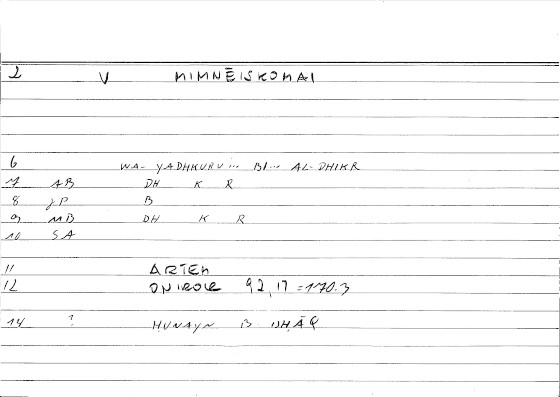 2 V MIMNĒISKOMAI
6 WA- YADHKURU... BI... AL-DHIKR
7 AB DH K R
8 JP B
9 MB DH K R
10 SA
11 ARTEM
12 ONIROCR 92,17 = 170.3
14 ? ḤUNAYN B ISḤĀQ